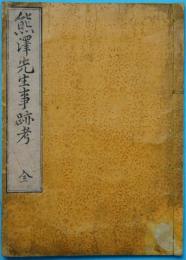 熊澤先生事跡考 全